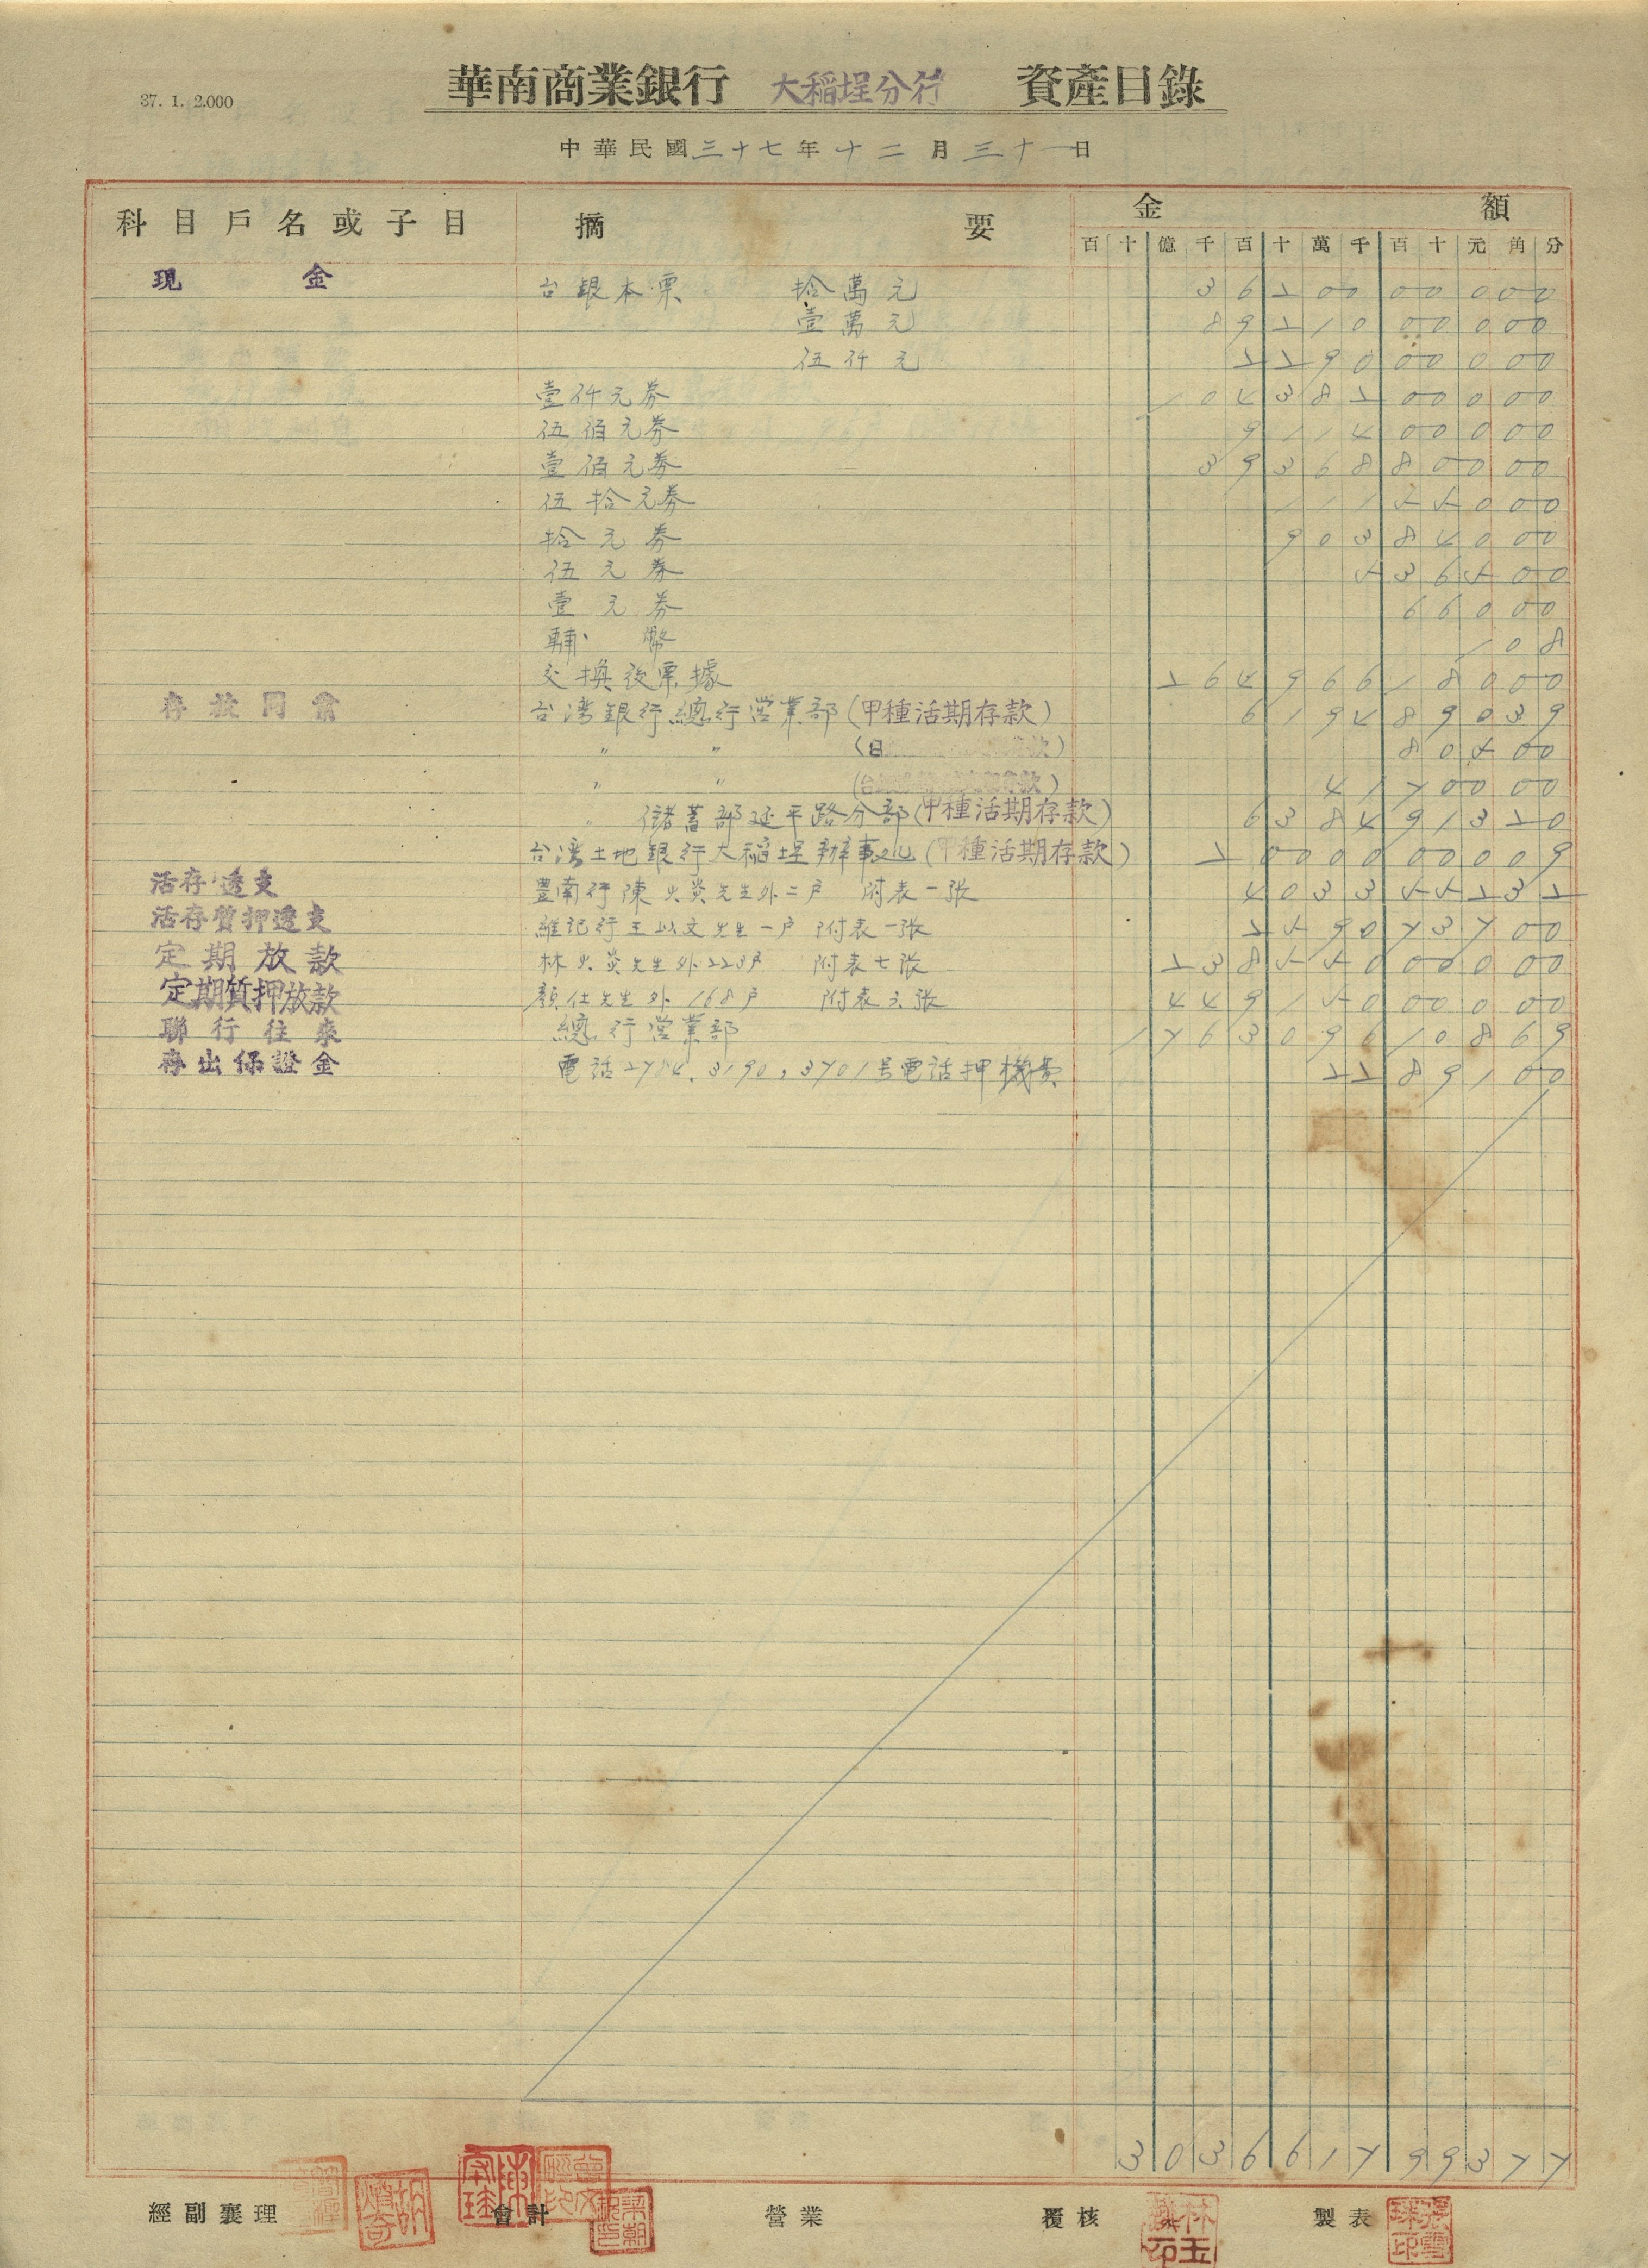 37. 1. 2.000
華南商業銀行 大稻埕分行 資產目錄
中華民國三十七年十二月三十一日
科目戶名或子目 摘要 金額
百 十 億 千 百 十 萬 千 百 十 元 角 分
現金 台銀本票 拾萬元 3620000000
壹萬元 8921000000
伍仟元 229000000
壹仟元券 10438200000
伍佰元券 911400000
壹佰元券 3936880000
伍拾元券 11155000
拾元券 90384000
伍元券 536500
壹元券 66000
輔幣 108
交換後票據 26496618000
存放同業 台湾銀行總行营業部(甲種活期存款) 619489039
〃 〃 80500
〃 〃 4170000
〃 儲蓄部延平路分部(甲種活期存款) 638491320
台湾土地銀行大稻埕辦事処(甲種活期存款) 2000000009
活存透支 豊南行陳火炎先生外二戶 附表一張 403355232
活存質押透支 維記行王以文先生一戶 附表一張 259073700
定期放款 林火炎先生外223戶 附表七張 23855000000
定期質押放款 顏仕先生外168戶 附表六張 44915000000
聯行往來 總行营業部 176309610869
存出保證金 電話2784、3190、3701号電話押機費 2289100
303661799377
經副襄理 會計 營業 覆核 製表